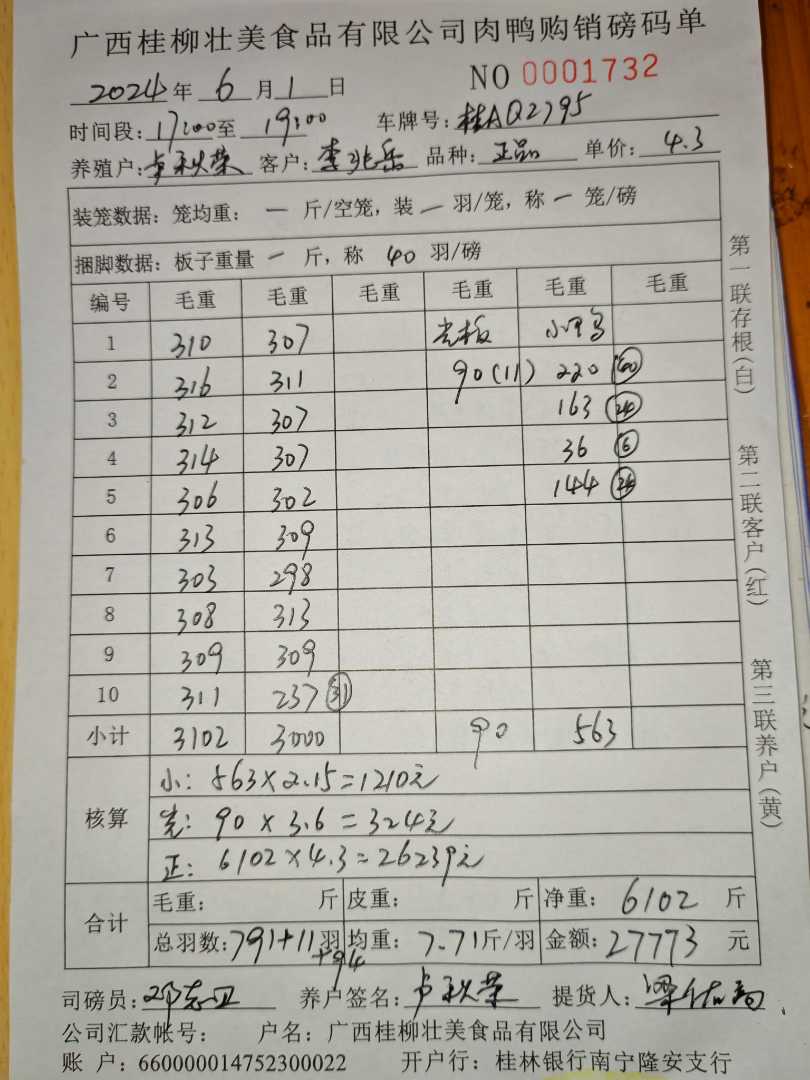 广西桂柳壮美食品有限公司肉鸭购销磅码单
2024 年 6 月 1 日 NO 0001732
时间段: 17:00 至 19:00 车牌号: 桂AQ2795
养殖户: 卢秋荣 客户: 李兆岳 品种: 正品 单价: 4.3
装笼数据: 笼均重: 一 斤/空笼, 装 一 羽/笼, 称 一 笼/磅
捆脚数据: 板子重量 一 斤, 称 40 羽/磅
编号 毛重 毛重 毛重 毛重 毛重 毛重
1 310 307 光板 小鸭
2 316 311 90(11) 220 (40)
3 312 307 163 (24)
4 314 307 36 (6)
5 306 302 144 (24)
6 313 309
7 303 298
8 308 313
9 309 309
10 311 237 (31)
小计 3102 3000 90 563
核算
小: 563×2.15=1210元
光: 90×3.6=324元
正: 6102×4.3=26239元
合计
毛重: 斤 皮重: 斤 净重: 6102 斤
总羽数: 791+11羽 均重: 7.71斤/羽 金额: 27773 元
+94
司磅员: 邓志卫 养户签名: 卢秋荣 提货人:
公司汇款帐号: 户名: 广西桂柳壮美食品有限公司
账 户: 660000014752300022 开户行: 桂林银行南宁隆安支行
第一联存根(白)
第二联客户(红)
第三联养户(黄)